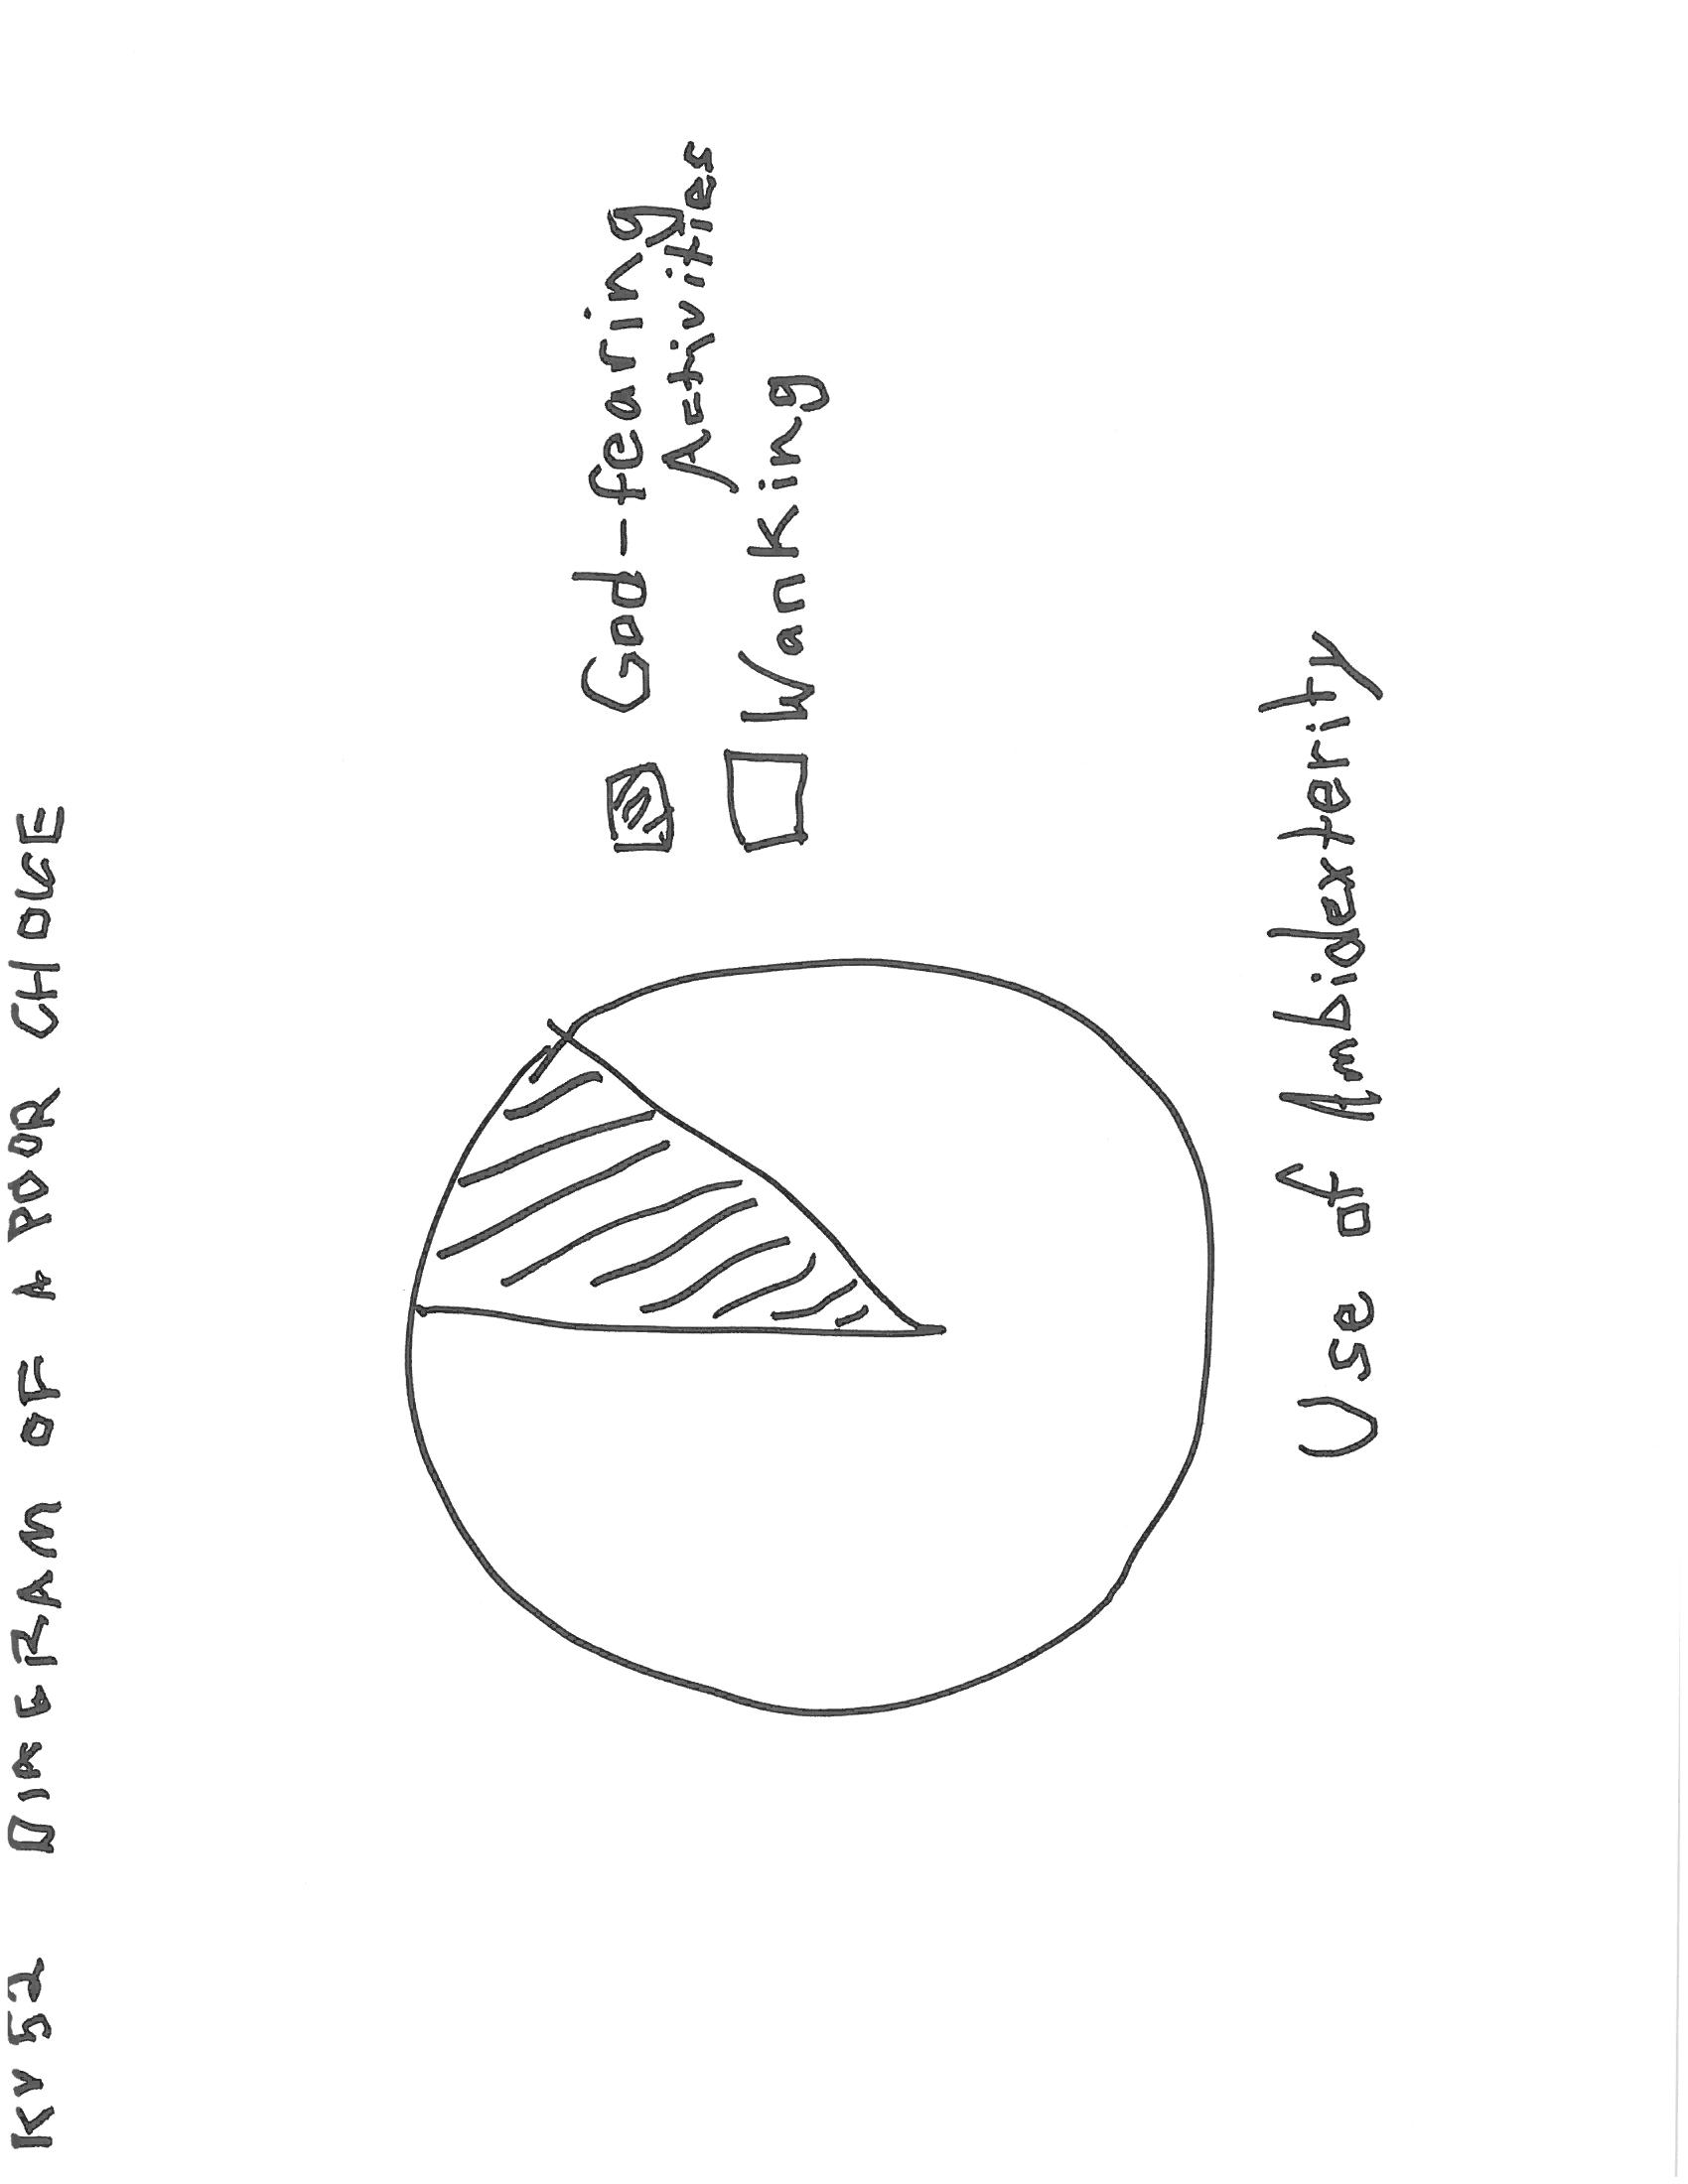 KV52 DIAGRAM OF A POOR CHOICE
God-fearing
Activities
Wanking
Use of Ambidexterity